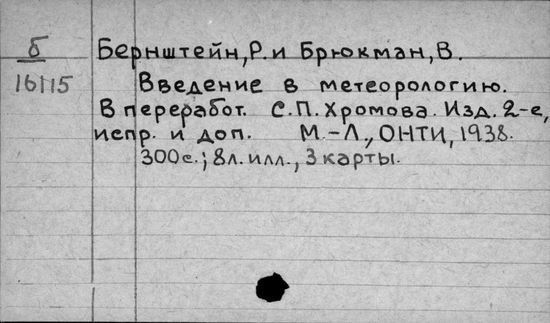 б
16115
Бернштейн, Р. и Брюкман, В.
Введение в метеорологию.
В переработ. С.П. Хромова. Изд. 2-е,
испр. и доп. М.-Л., ОНТИ, 1938.
300с.; 8л. илл., 3 карты.